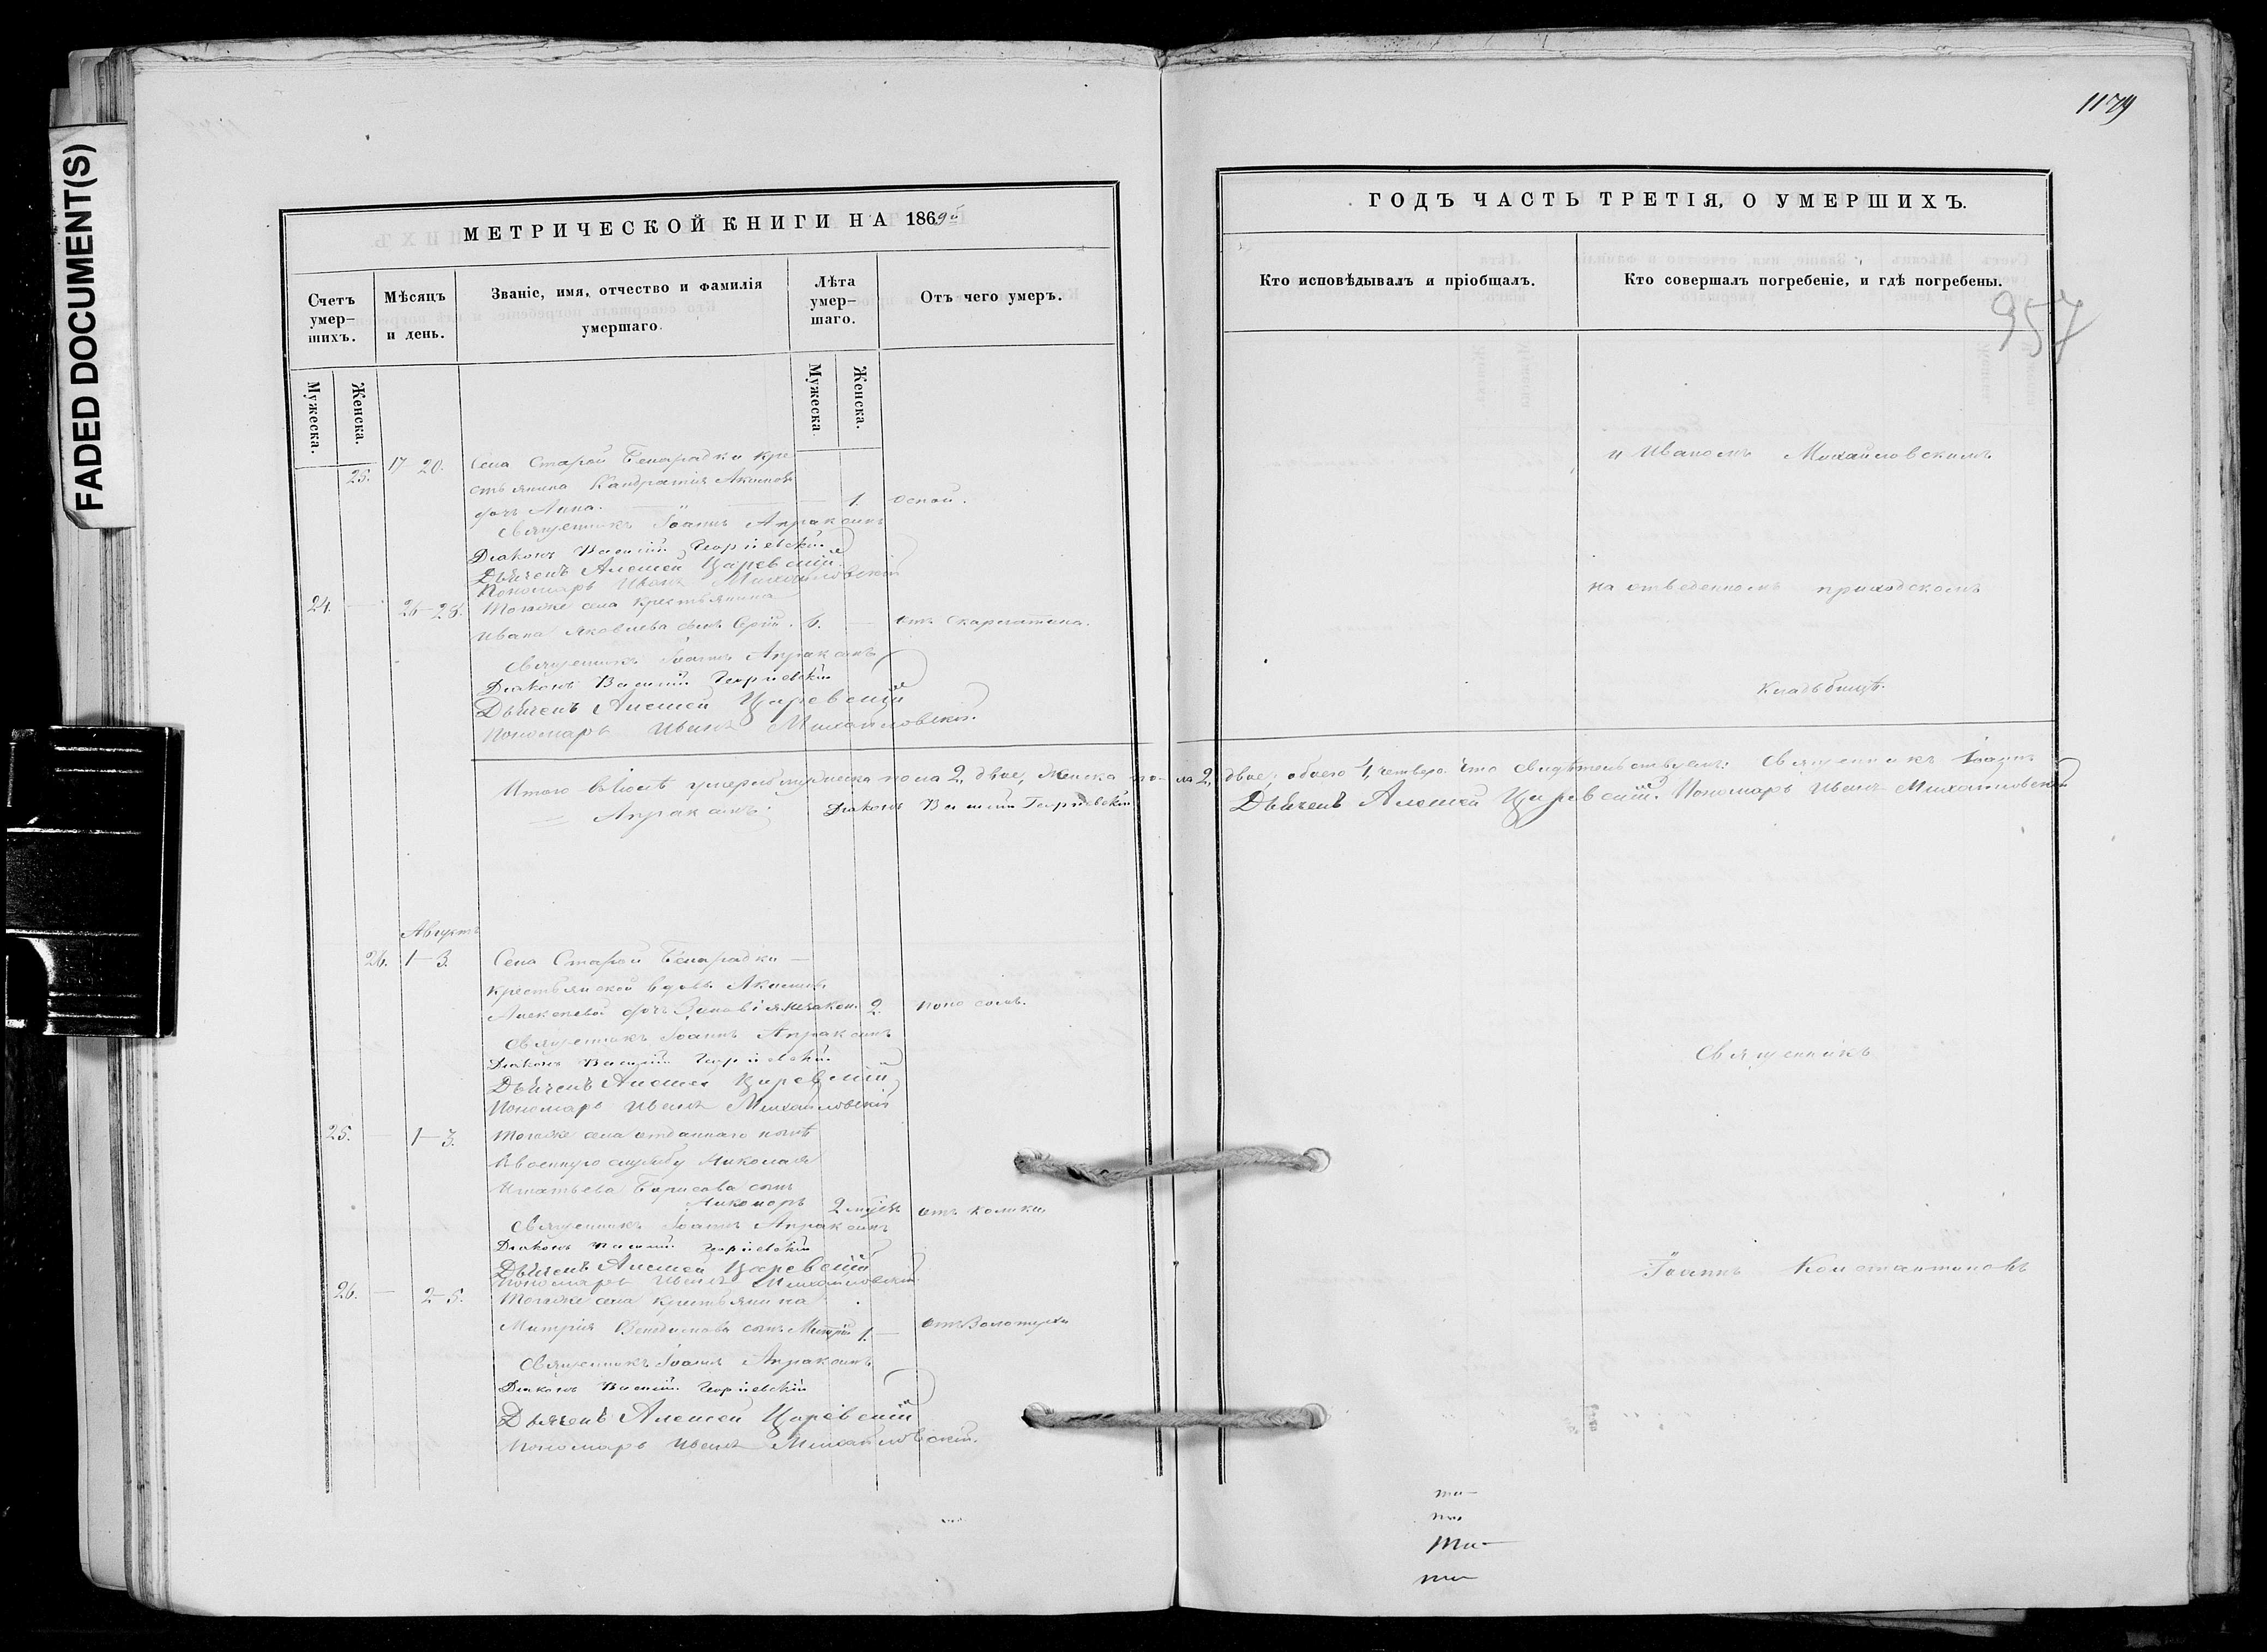 1179
FADED DOCUMENT(S)
МЕТРИЧЕСКОЙ КНИГИ НА 1869й
Счетъ умер-
шихъ.
Мѣсяцъ
и день.
Званіе, имя, отчество и фамилія
умершаго.
Лѣта
умер-
шаго.
Отъ чего умеръ.
Мужеска.
Женска.
Мужеска
Женска.
25. 17-20. Села Старой Бинарадки кре
стьянина Кандратія Акимова
дочь Анна. — 1. оспой.
Священникъ Іоаннъ Апраксинъ
Діаконъ Василій Георгіевскій
Дьячекъ Алексей Царевскій
Пономарь Иванъ Михайловскій
24. — 26-28. Тогоже села крестьянина
Ивана Яковлева сынъ 6. — отъ Скарлатина.
Священникъ Іоаннъ Апраксинъ
Діаконъ Василій Георгіевскій
Дьячекъ Алексей Царевскій
Пономарь Иванъ Михайловскій.
Итого въ Іюлѣ умерло мужеска пола 2, двое, женска по-
Апраксинъ; Діаконъ Василій Георгіевскій
Августъ
26. 1-3. Села Старой Бинарадки —
крестьянской вдовы Акилины
Алексевой дочь Зиновія незакон. 2. поносомъ.
Священникъ Іоаннъ Апраксинъ
Діаконъ Василій Георгіевскій
Дьячекъ Алексей Царевскій
Пономарь Иванъ Михайловскій
25. — 1-3. Тогоже села отданнаго
въ военную службу Николая
Игнатьева Борисова сынъ
Никаноръ 2 отъ колики
Священникъ Іоаннъ Апраксинъ
Діаконъ Василій Георгіевскій
Дьячекъ Алексей Царевскій
Пономарь Иванъ Михайловскій
26. — 2-5. Тогоже села крестьянина
Митрія сынъ Митрій 1. — отъ Золотухи
Священникъ Іоаннъ Апраксинъ
Діаконъ Василій Георгіевскій
Дьячекъ Алексей Царевскій
Пономарь Иванъ Михайловскій.
ГОДЪ ЧАСТЬ ТРЕТІЯ, О УМЕРШИХЪ.
Кто исповѣдывалъ и пріобщалъ.
Кто совершалъ погребеніе, и гдѣ погребены.
957
и Иваномъ Михайловскимъ
на отведенномъ приходскомъ
кладьбищѣ.
ла 2, двое, обоего 4, четверо. Что свидѣтельствуемъ: Священникъ Іоаннъ
Дьячекъ Алексей Царевскій. Пономарь Иванъ Михайловскій
Священникъ
Іоаннъ Константиновъ